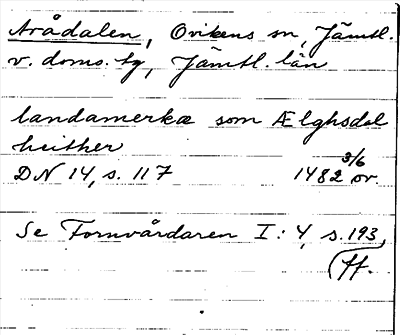 Arådalen, Ovikens sn, Jämtl.
v. doms. tg, Jämtl. län
landamerkæ som Ælghsdal
heither
3/6
DN 14, s. 117 1482 or.
Se Fornvårdaren I: 4, s. 193
ff.